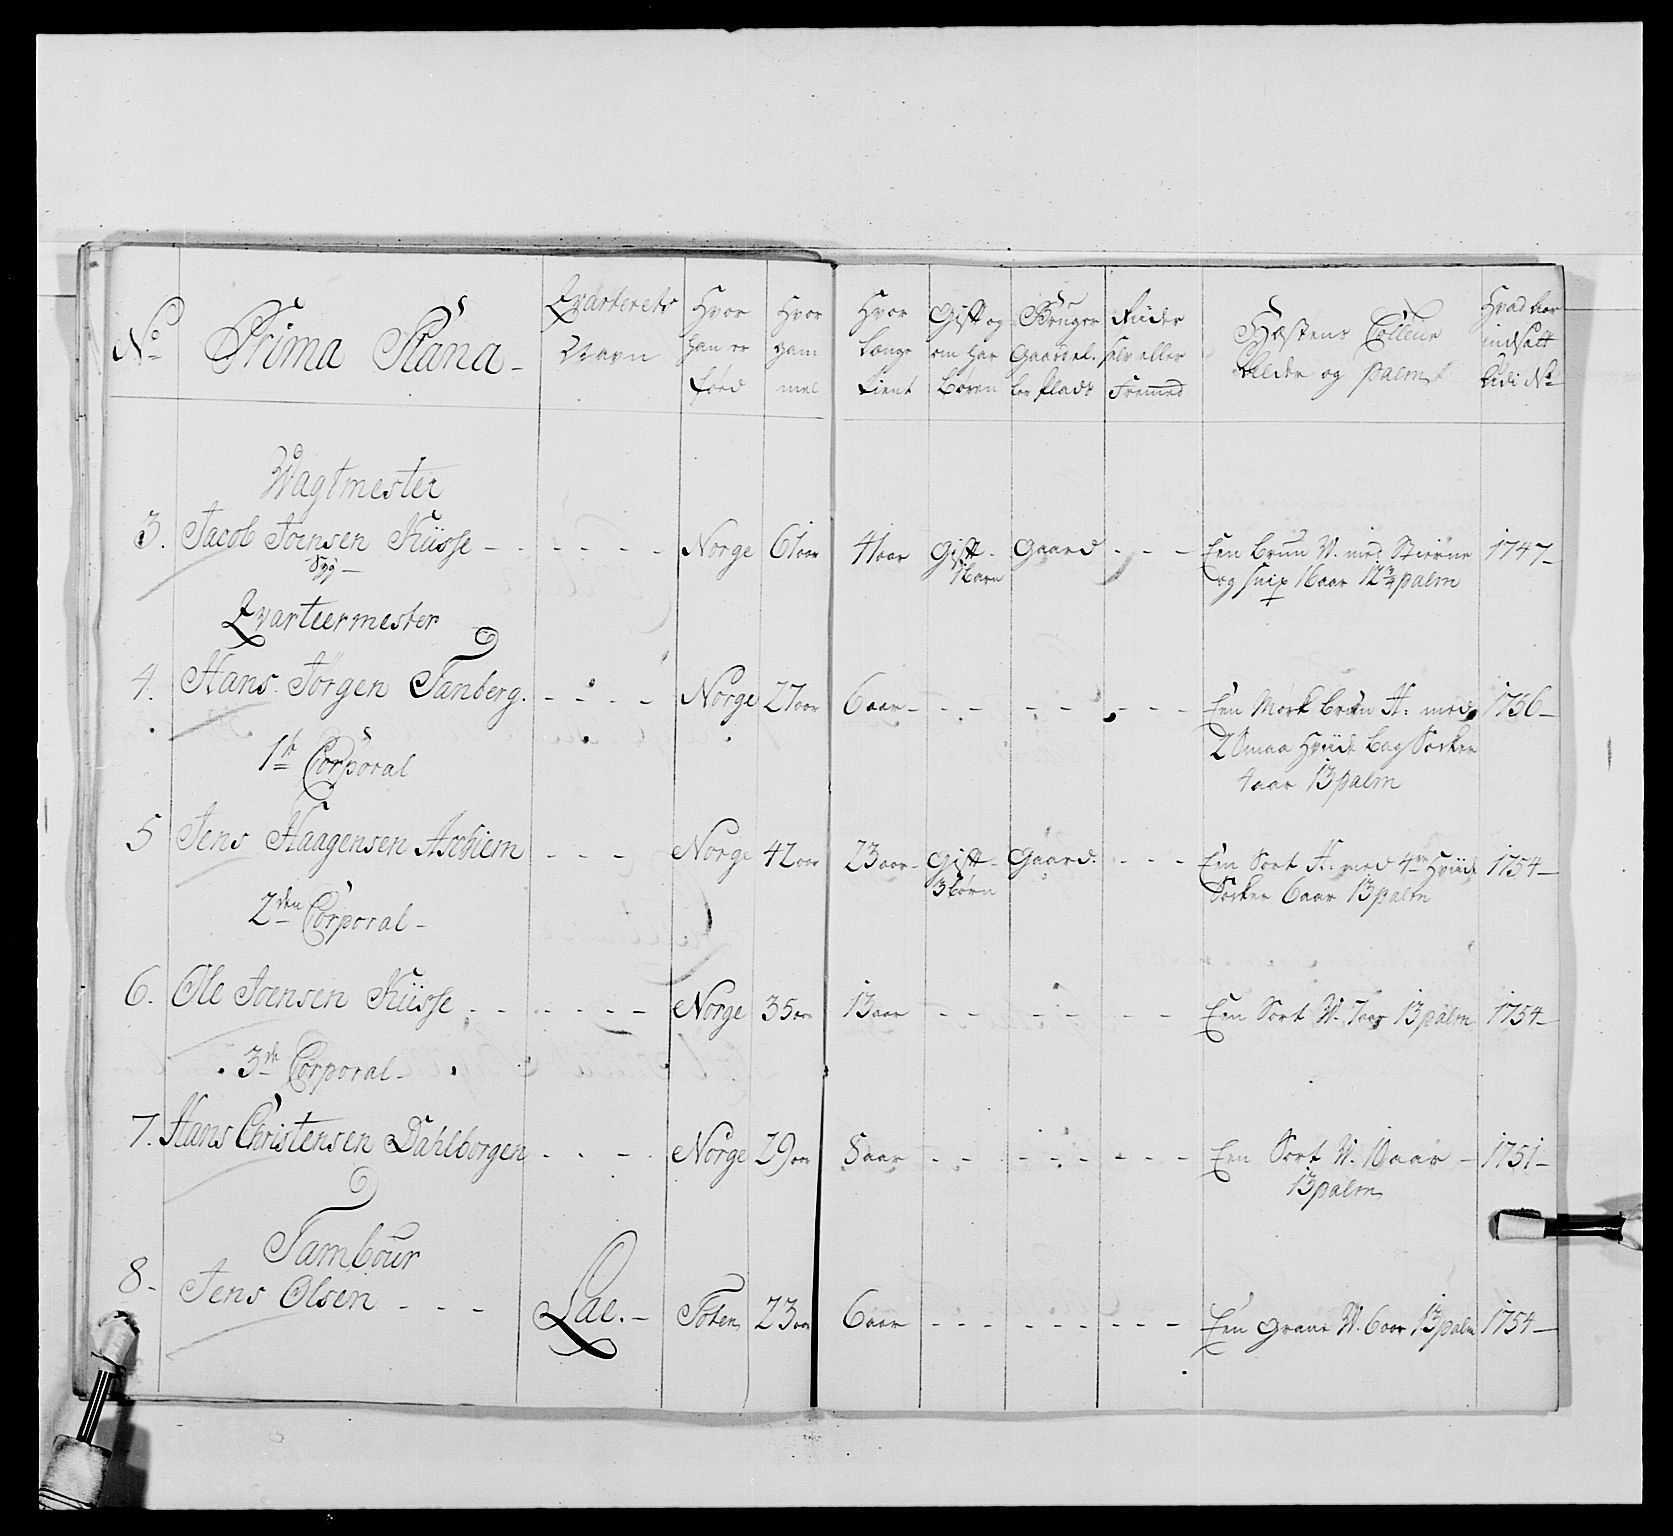 No Prima Plana - Qvarterets Navn Hvor han er föed Hvor gammel Hvor længe tient Gift og om har Börn Bruger Gaard el. ler Plads Riider selv eller Fremed Hæstens Colleur Alder og palm Hvad aar indsatt Udi No
Wagtmester
3. Jacob Joensen Küsse - - - - - - Norge 61 aar 41 aar Gift - Gaard - - - Een brun V. med Stiörne 1747 -
Syg - 1 barn og snip 16 aar 12 3/4 palm
Qvarteermester
4. Hans Jörgen Tanberg. - - - - Norge 27 aar 6 aar - - - - - - - - Een Mörk brun H: med 1756 -
2 Smaa Hviide bag Socker
4 aar 13 palm
1te Corporal
5 Jens Haagensen Aschiem - - - Norge 42 aar 23 aar - Gift - Gaard. - - - Een Sort H: med 4re Hviide 1754 -
3 börn Socker 6 aar 13 palm
2den Corporal -
6. Ole Joensen Küsse - - - - - - Norge 35 aar 13 aar - - - - - - - Een Sort V. 7 aar 13 palm 1754 -
3de Corporal -
7. Hans Christensen Dahlborgen - - - Norge 29 aar 8 aar - - - - - - - - Een Sort V. 10 aar - 1751 -
13 palm
Tambour
8 - Jens Olsen - - - Lae. - Toten 23 aar 6 aar - - - - - - - - Een Graae V. 6 aar 13 palm 1754 -